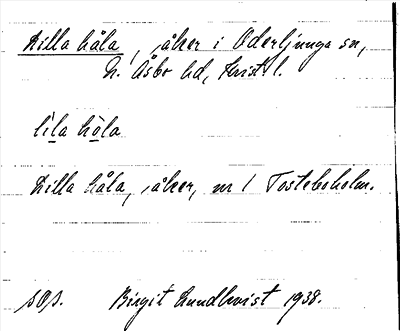 Lilla håla, åker i Oderljunga sn,
N. Åsbo hd, Krist. l.
lila hòla
Lilla håla, åker, nr 1 Tostebeholm.
sOs. Birgit Lundkvist 1938.